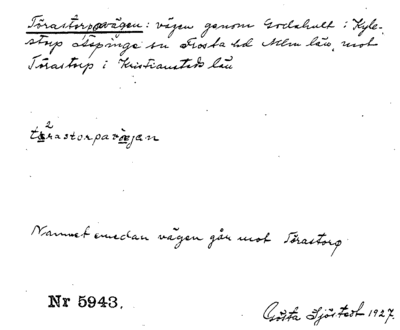 Törastorpavägen: vägen genom Godahult i Kyle-
storp Äspinge sn Frosta hd Mlm län, mot
Törastorp i Kristianstads län
Namnet emedan vägen går mot Törastorp
Nr 5943.
Gösta Sjöstedt 1927.